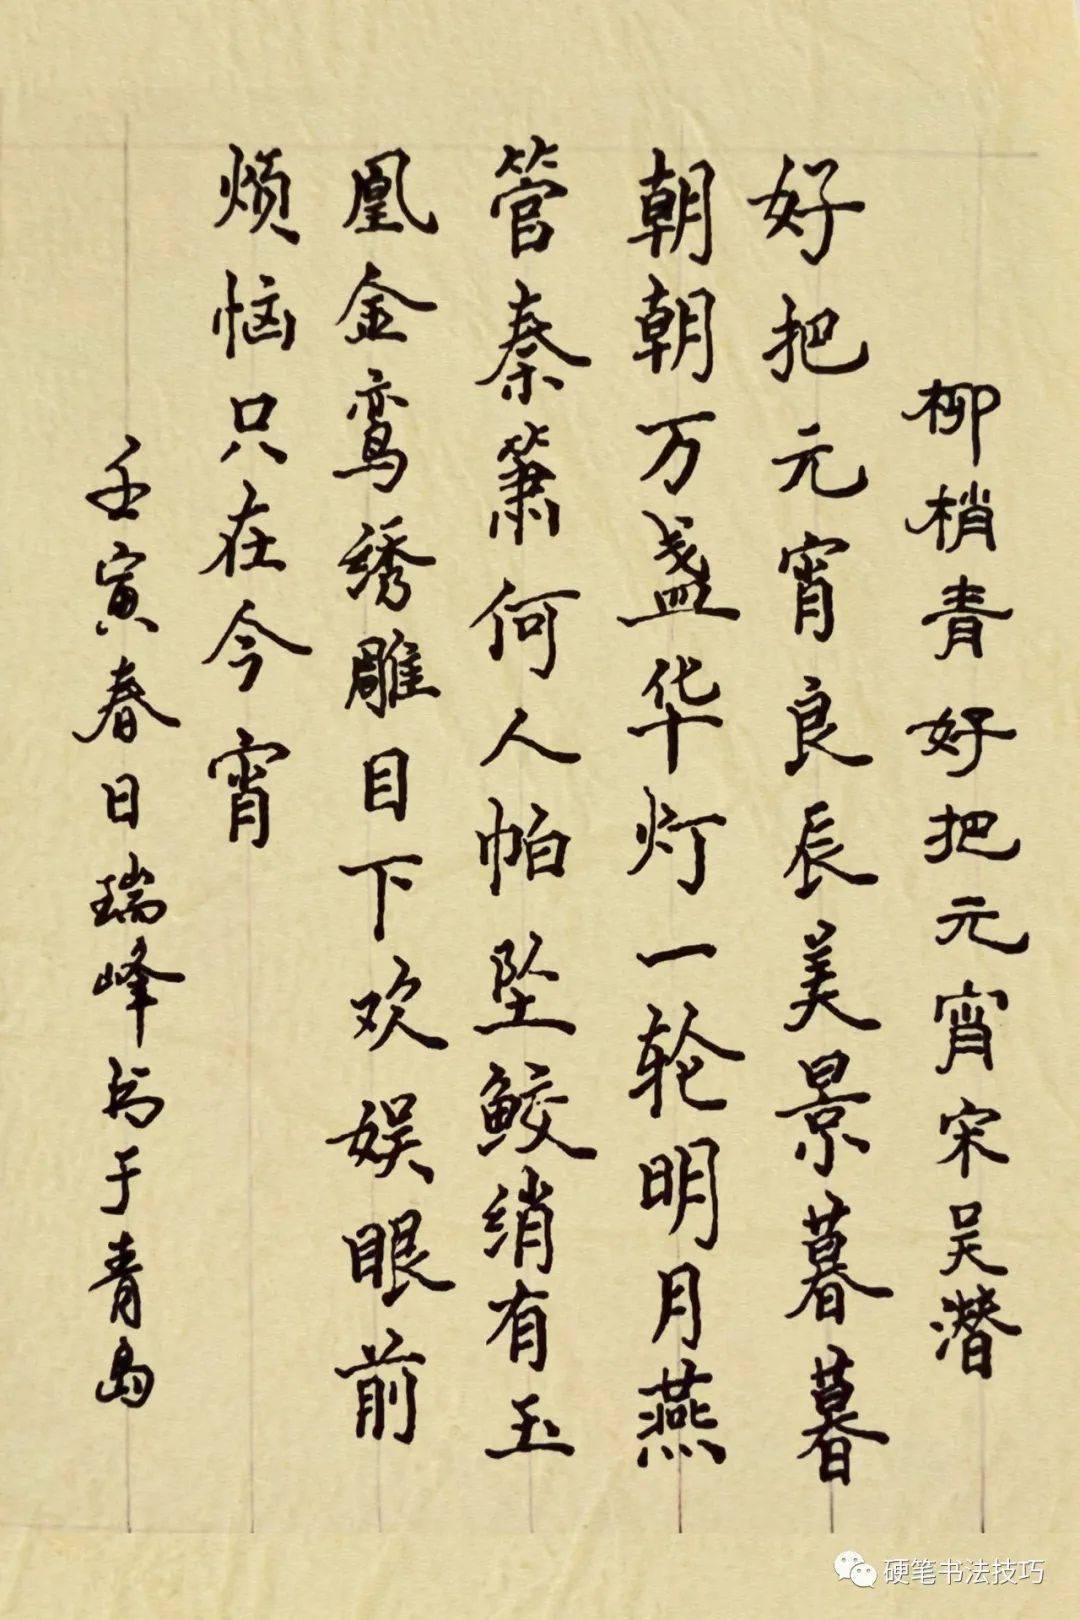 柳梢青好把元宵宋吴潜
好把元宵良辰美景暮暮
朝朝万盏华灯一轮明月燕
管秦箫何人帕坠鲛绡有玉
凰金鸾绣雕目下欢娱眼前
烦恼只在今宵
壬寅春日瑞峰书于青岛
硬笔书法技巧